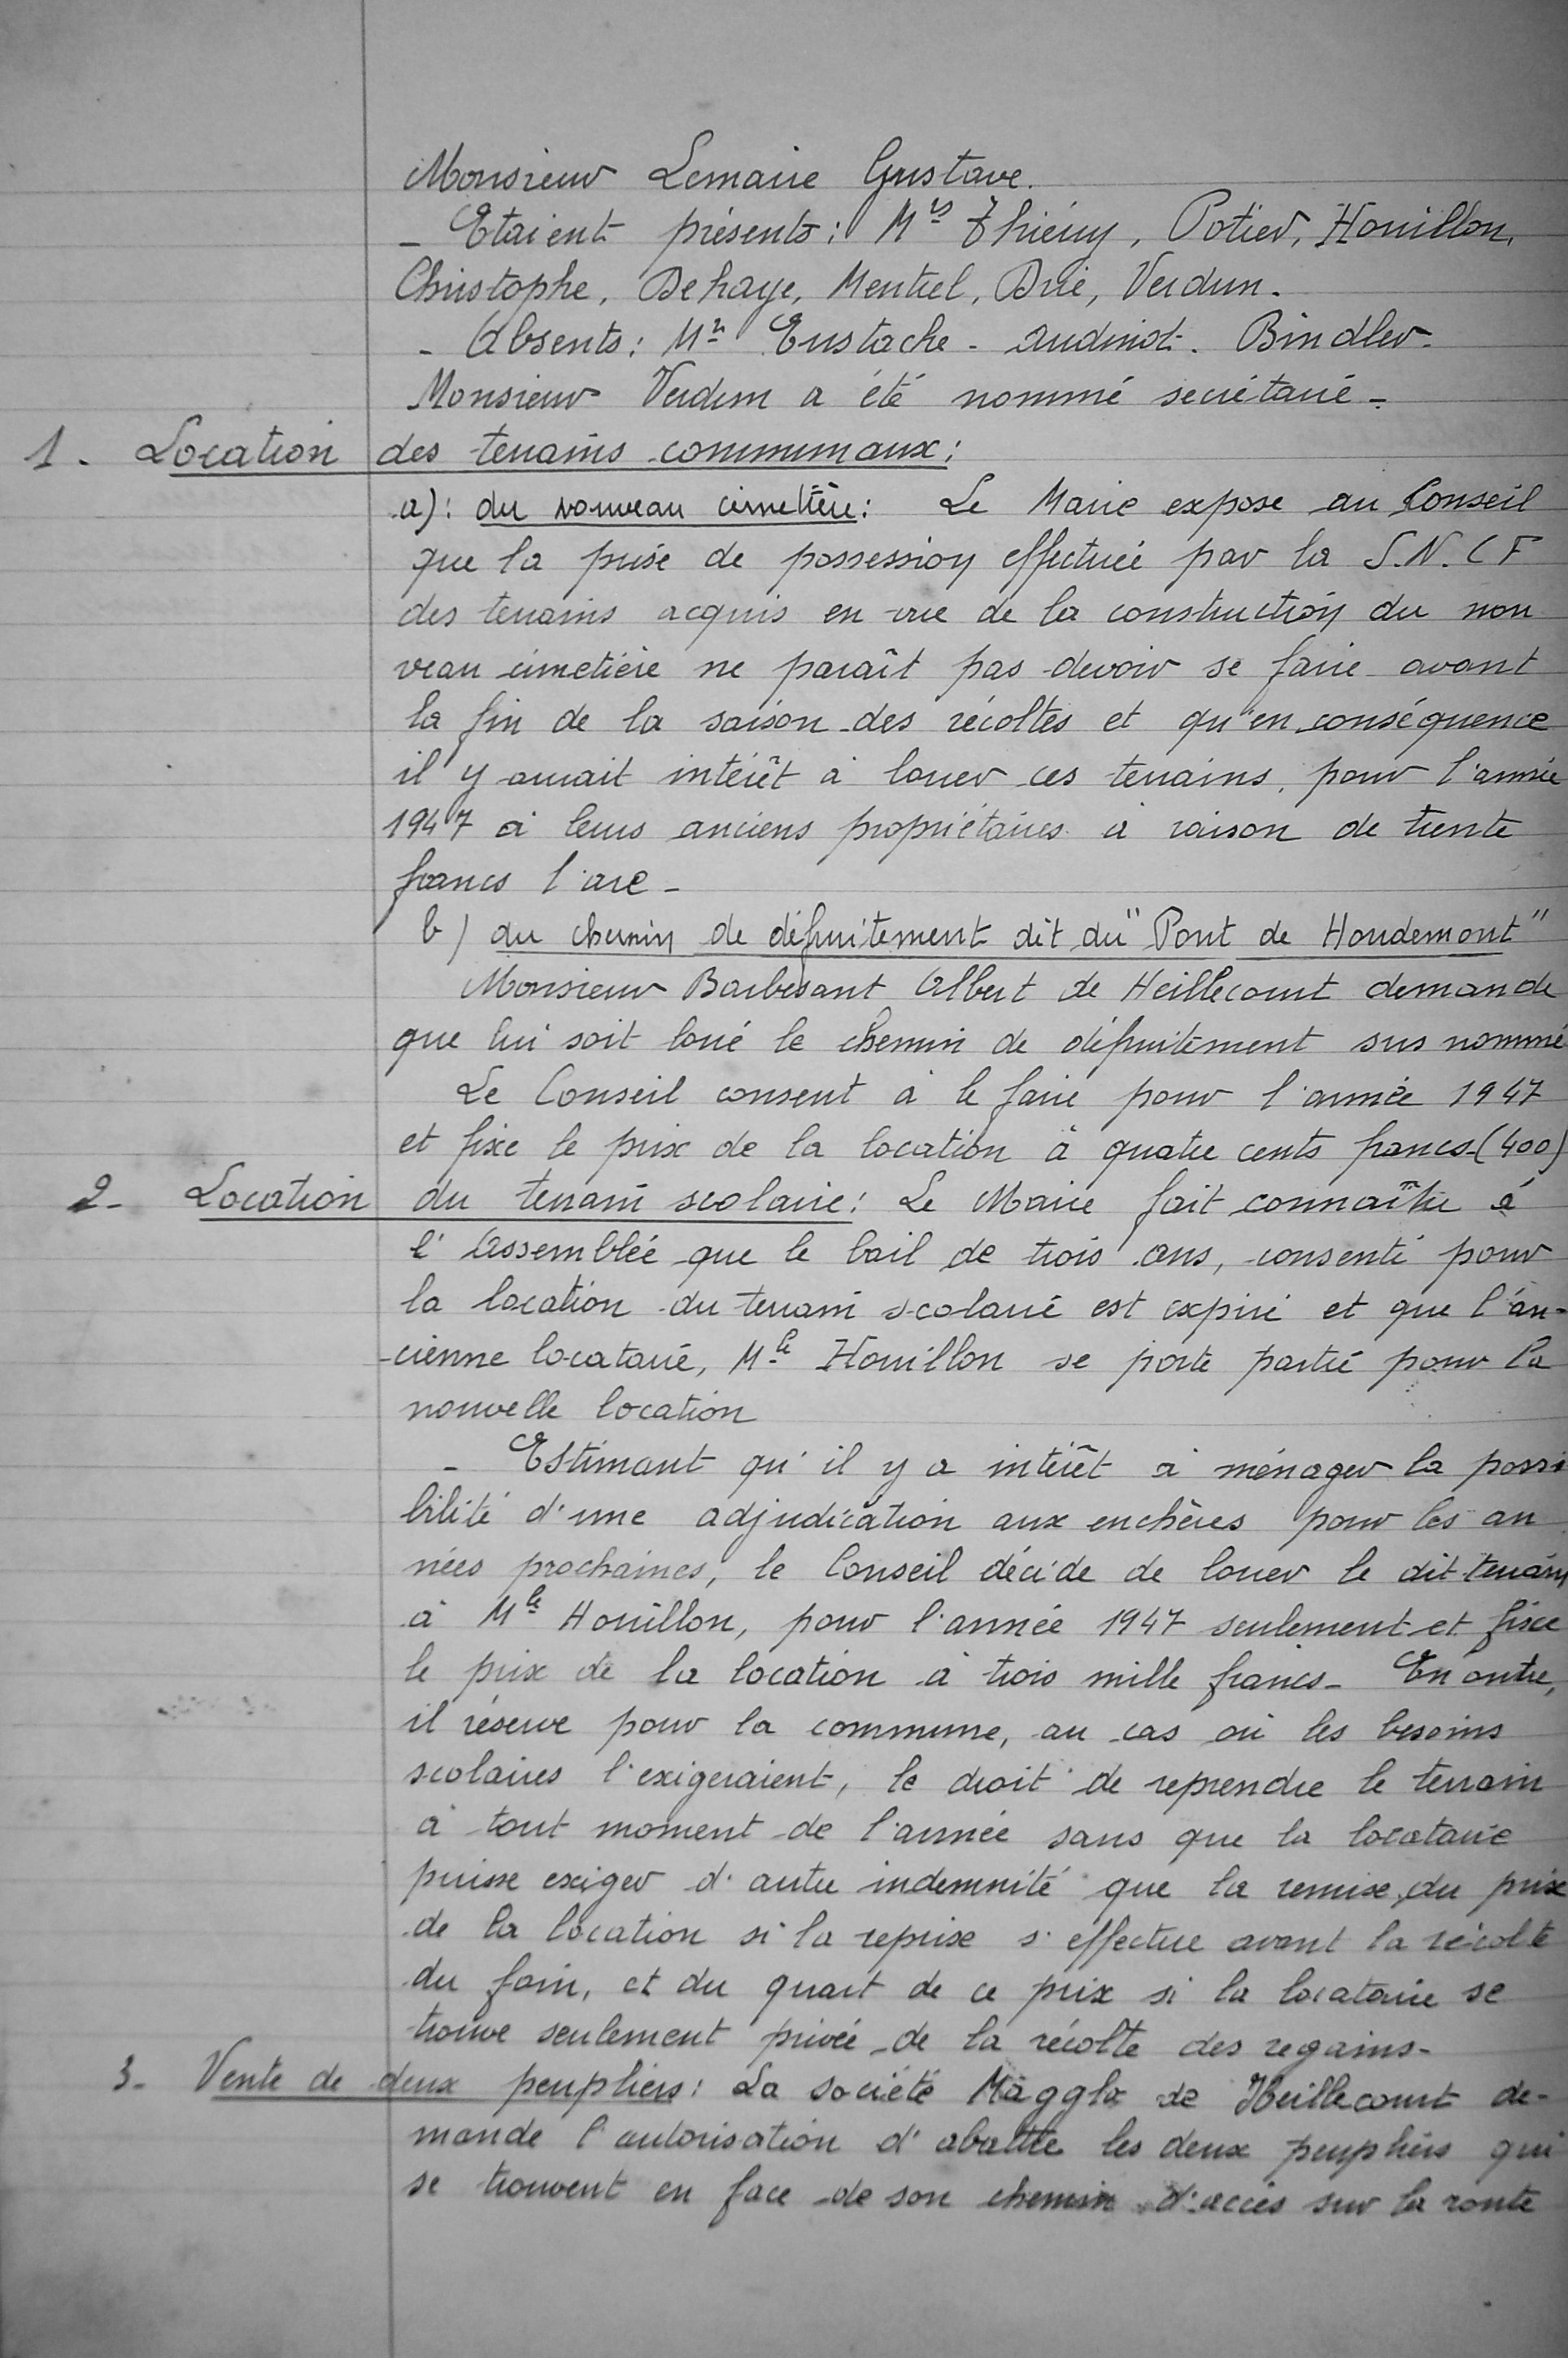 Monsieur Lemaire Gustave.
- Etaient présents : Mrs Thiéry, Potier, Houillon,
Christophe, Dehaye, Mentrel, Brié, Verdun.
- Absents : Mr Eustache - Audinot. Bindler.
Monsieur Verdun a été nommé secrétaire -
1. Location des terrains communaux :
a) : du nouveau cimetière : Le Maire expose au Conseil
que la prise de possession effectuée par la S.N.C F
des terrains acquis en vue de la construction du nou
veau cimetière ne paraît pas devoir se faire avant
la fin de la saison des récoltes et qu'en conséquence
il y aurait intérêt à louer ces terrains, pour l'année
1947 à leurs anciens propriétaires à raison de trente
francs l'are -
b) du chemin de défruitement dit du "Pont de Houdemont"
Monsieur Barbesant Albert de Heillecourt demande
que lui soit loué le chemin de défruitement sus nommé
Le Conseil consent à le faire pour l'année 1947
et fixe le prix de la location à quatre cents francs (400)
2- Location du terrain scolaire : Le Maire fait connaître à
l'Assemblée que le bail de trois ans, consenti pour
la location du terrain scolaire est expiré et que l'an-
-cienne locataire, Mle Houillon se porte partie pour la
nouvelle location
- Estimant qu'il y a intérêt à ménager la possi
bilité d'une adjudication aux enchères pour les an
nées prochaines, le Conseil décide de louer le dit terrain
à Mle Houillon, pour l'année 1947 seulement et fixe
le prix de la location à trois mille francs - En outre,
il réserve pour la commune, au cas où les besoins
scolaires l'exigeraient, le droit de reprendre le terrain
à tout moment de l'année sans que la locataire
puisse exiger d'autre indemnité que la remise du prix
de la location si la reprise s'effectue avant la récolte
du foin, et du quart de ce prix si la locataire se
trouve seulement privée de la récolte des regains -
3- Vente de deux peupliers : La société Màggla de Heillecourt de-
mande l'autorisation d'abattre les deux peupliers qui
se trouvent en face de son chemin d'accès sur la route